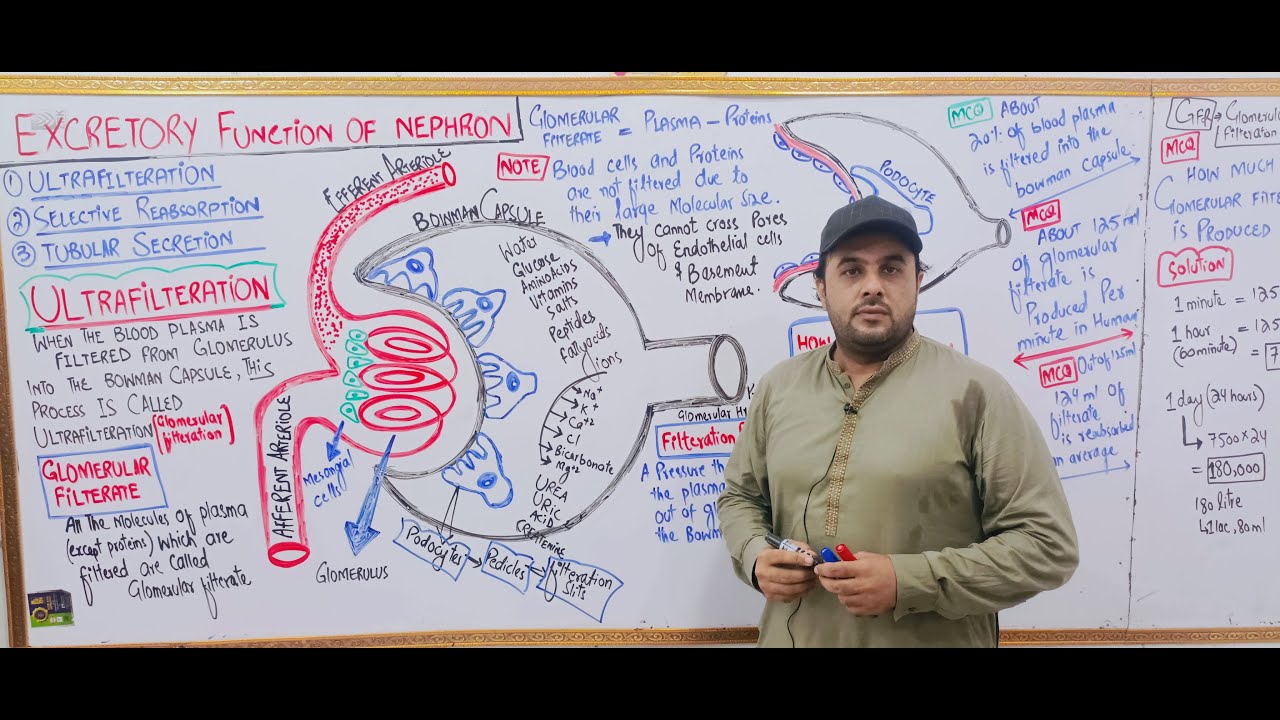 EXCRETORY FUNCTION OF NEPHRON
① ULTRAFILTERATION
② SELECTIVE REABSORPTION
③ TUBULAR SECRETION
ULTRAFILTERATION
WHEN THE BLOOD PLASMA IS
FILTERED FROM GLOMERULUS
INTO THE BOWMAN CAPSULE, THIS
PROCESS IS CALLED
ULTRAFILTERATION (Glomerular
filteration)
GLOMERULAR
FILTERATE
All THE Molecules of plasma
(except proteins) which are
filtered are called
Glomerular filterate
EFFERENT ARTERIOLE
AFFERENT ARTERIOLE
Mesangial
cells
GLOMERULUS
BOWMAN CAPSULE
Water
Glucose
AminoAcids
Vitamins
Salts
Peptides
Fattyacids
Ions
Na+
K+
Ca+2
Cl
Bicarbonate
Mg+2
UREA
URIC
ACID
CREATENINE
Podocytes
Pedicles
filteration
Slits
GLOMERULAR
FILTERATE = PLASMA - Proteins
NOTE
Blood cells and Proteins
are not filtered due to
their large Molecular Size.
They cannot cross Pores
Of Endothelial cells
& Basement
Membrane.
PODOCYTE
HOW
Glomerular
Filteration
A Pressure
the plasma
out of
the Bowm
MCQ ABOUT
20% of blood plasma
is filtered into the
bowman capsule.
MCQ
ABOUT 125ml
of glomerular
filterate is
Produced Per
minute in Human
MCQ Out of 125ml
124 ml of
filterate
is reabsorbed
average.
GFR → Glomerula
filteration
MCQ
HOW MUCH
GLOMERULAR FILTE
IS PRODUCED
Solution
1 minute = 125
1 hour = 125
(60minute) = 7
1 day (24 hours)
7500×24
= 180,000
180 litre